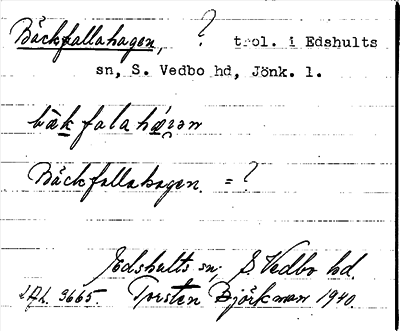 Bäckfallahagen, ? trol. i Edshults
sn, S. Vedbo hd, Jönk. l.
Bäckfallahagen. = ?
Edshults sn, S. Vedbo hd.
3665. Torsten Björkman 1940.